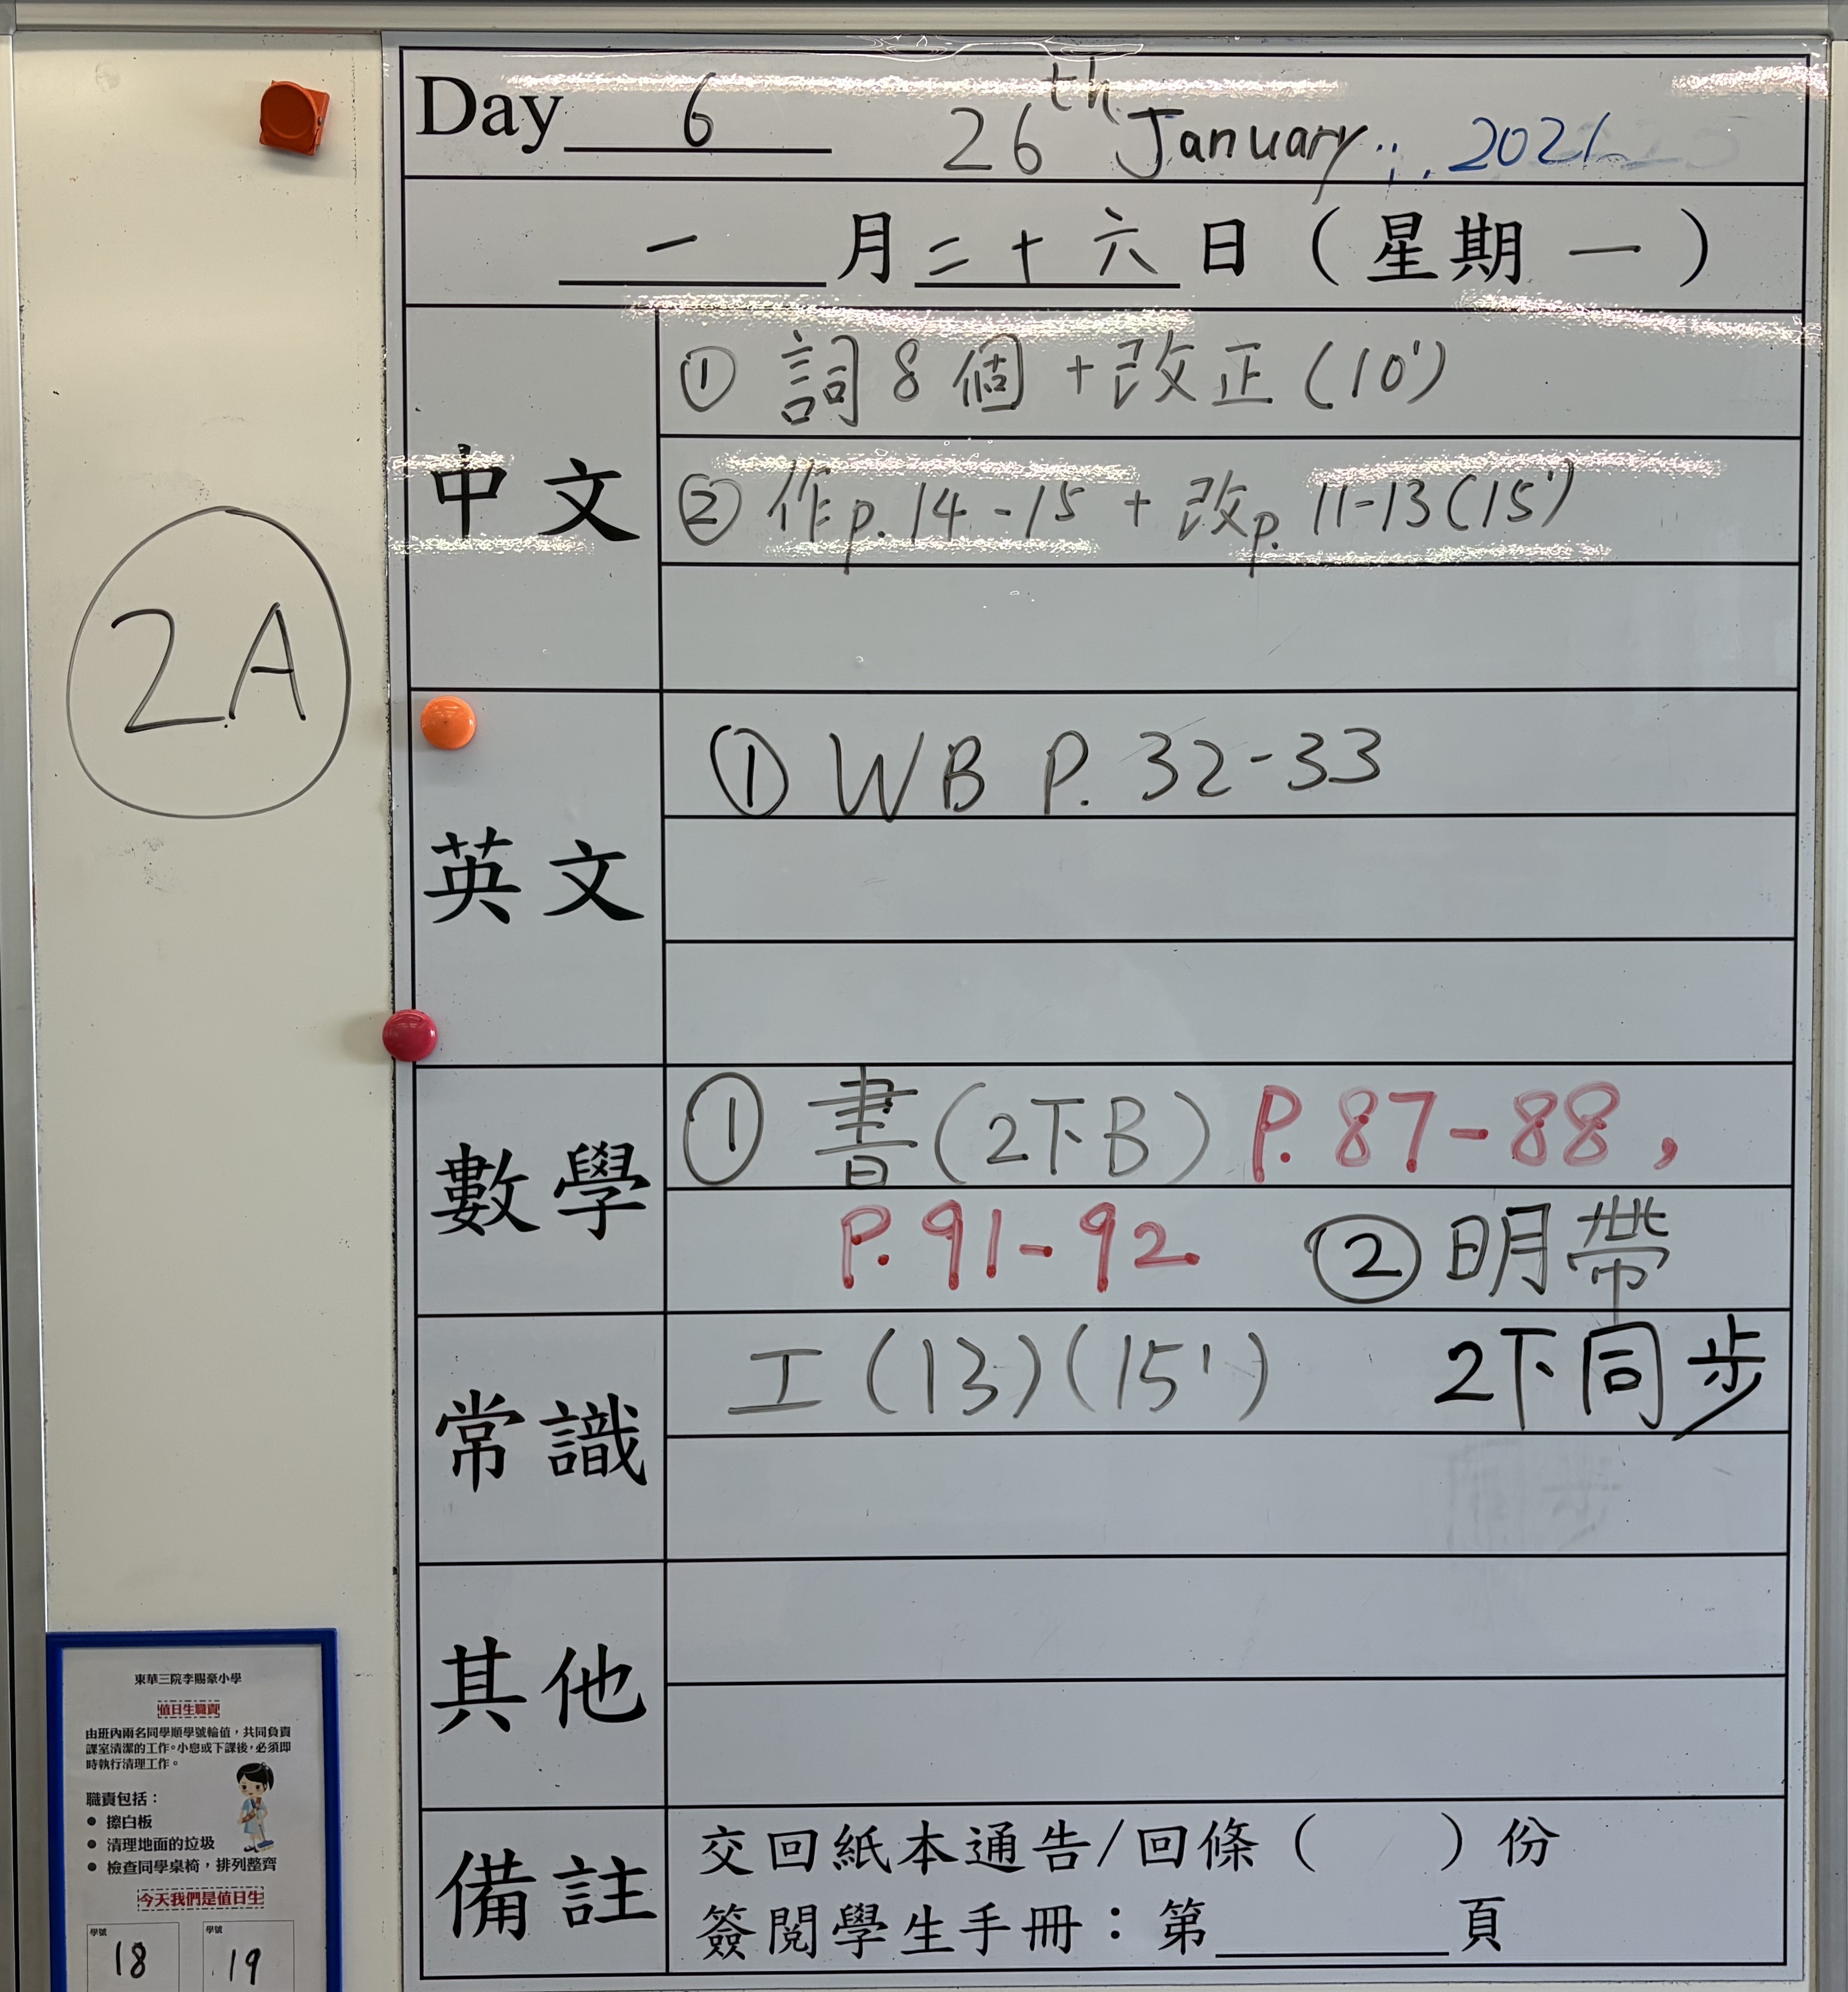 Day 6 26th January, 2021
一月二十六日（星期一）
中文
① 詞8個+改正(10')
② 作p.14-15+改p.11-13(15')
2A
英文
① WB P.32-33
數學
① 書(2下B) P.87-88,
P.91-92 ② 明帶
常識
工(13)(15') 2下同步
其他
備註
交回紙本通告/回條（ ）份
簽閱學生手冊：第____頁
東華三院李賜豪小學
值日生職責
由班內兩名同學順學號輪值，共同負責
課室清潔的工作。小息或下課後，必須即
時執行清理工作。
職責包括：
● 擦白板
● 清理地面的垃圾
● 檢查同學桌椅，排列整齊
今天我們是值日生
學號 學號
18 19